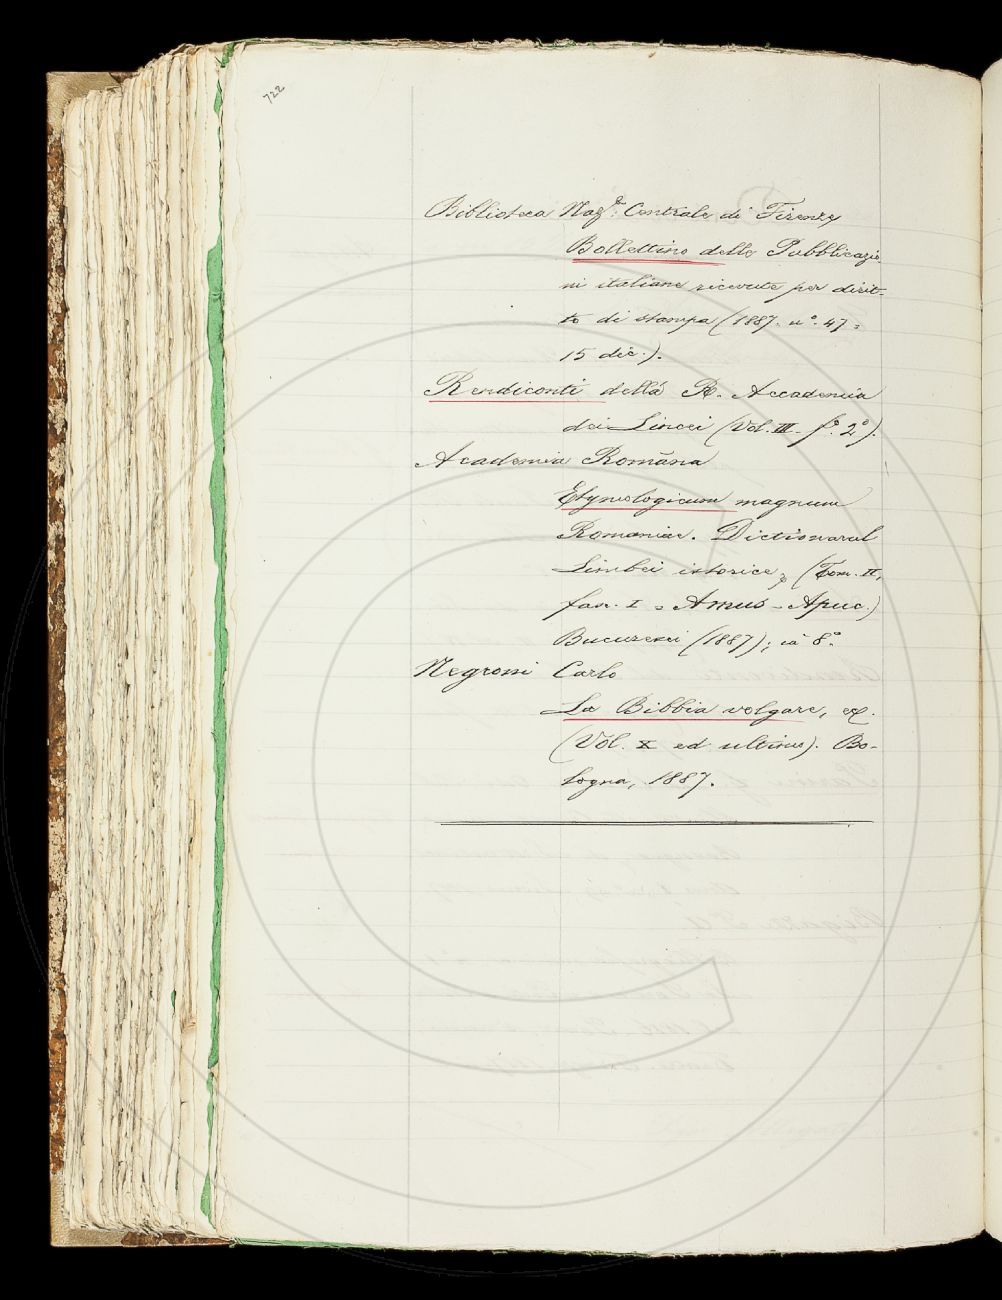 722
Biblioteca Naz.le Centrale di Firenze
Bollettino delle Pubblicazio-
ni italiane ricevute per dirit-
to di stampa (1887. n°. 47 =
15 dic.).
Rendiconti della R. Accademia
dei Lincei (Vol. III - f°. 2°).
Academia Romãna
Etymologicum magnum
Romaniae. Dictionarul
Limbei istorice, (Tom. II,
fasc. I = Amus - Apuc.)
Bucuresci (1887); in 8°.
Negroni Carlo
La Bibbia volgare, &.
(Vol. X ed ultimo). Bo-
logna, 1887.